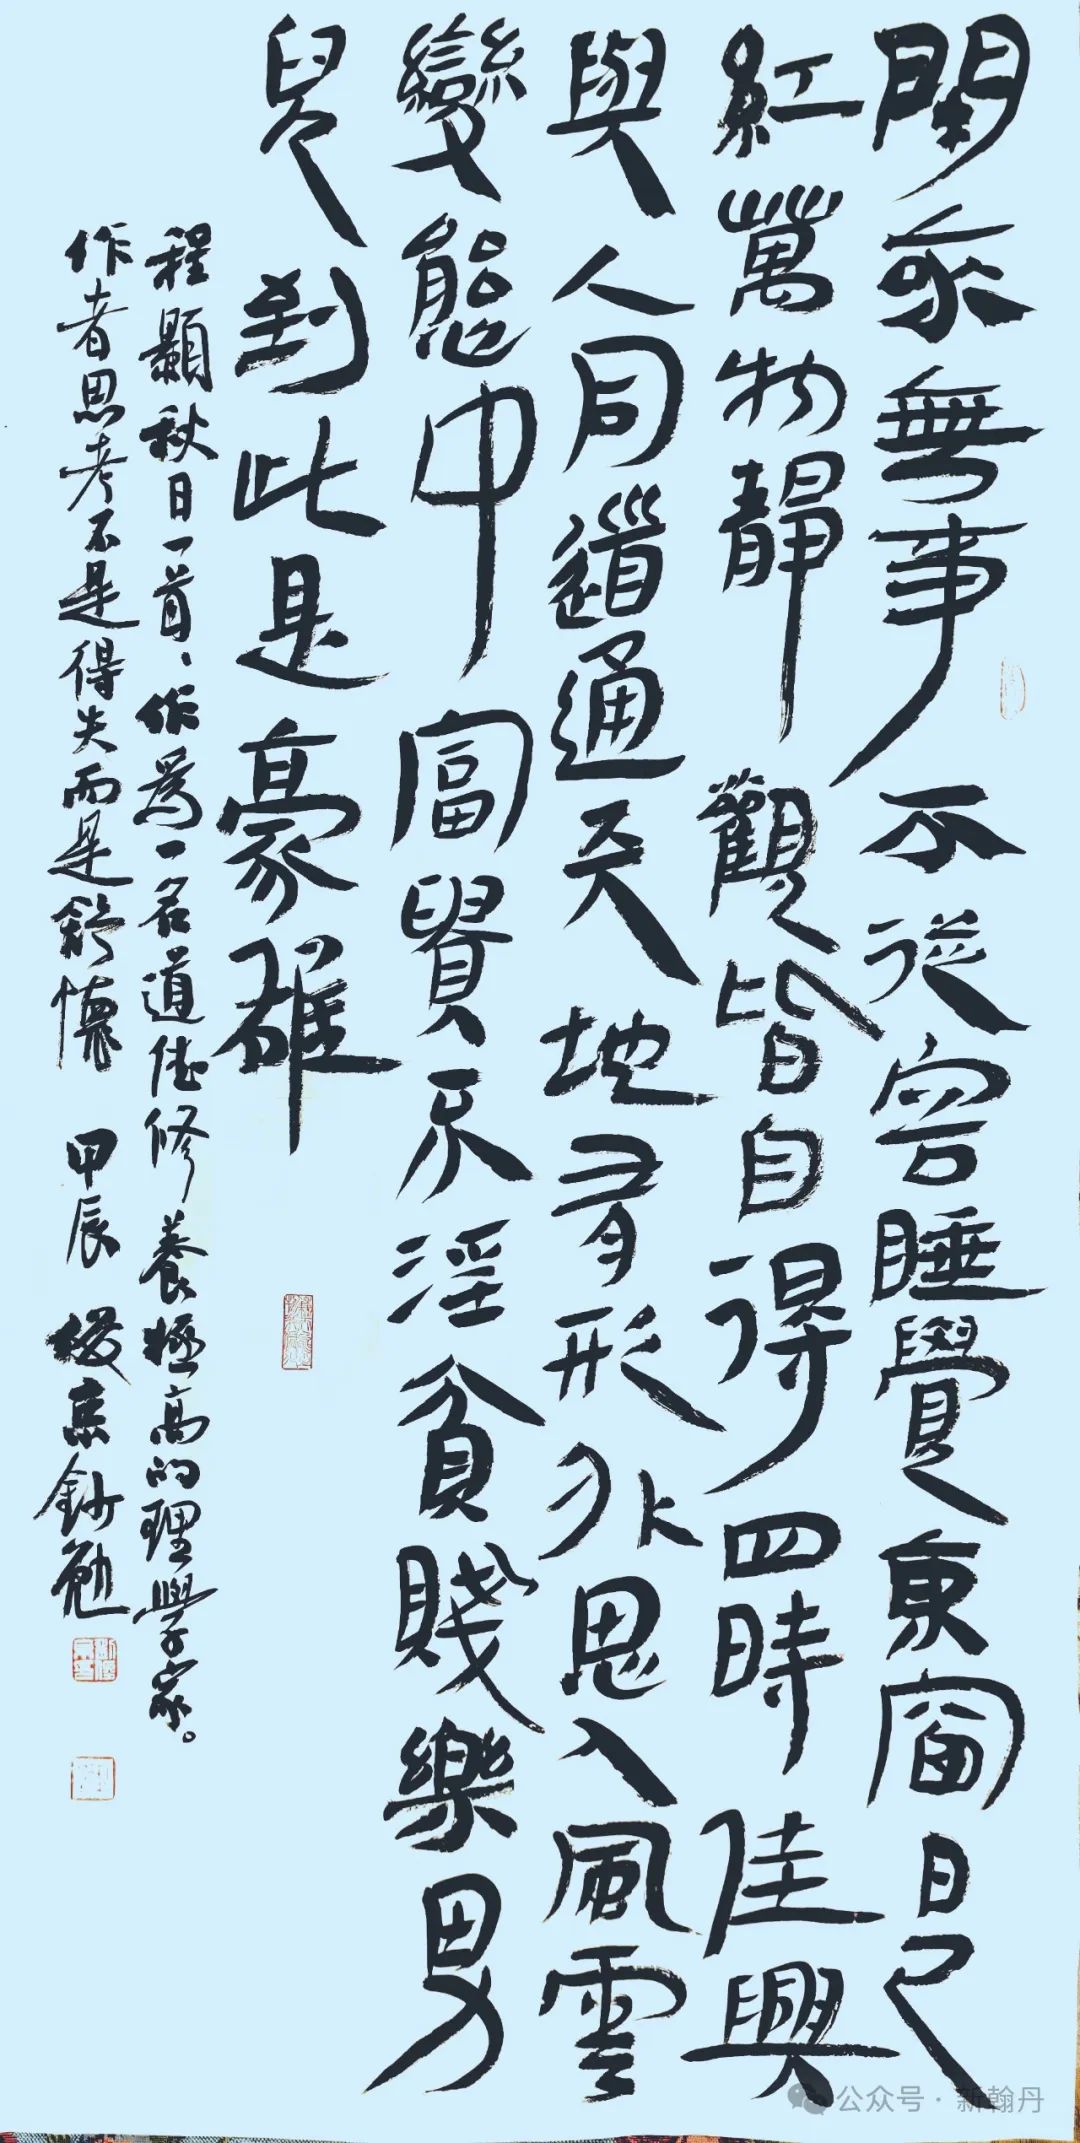 閑來無事不從容睡覺東窗日已
紅萬物靜觀皆自得四時佳興
與人同道通天地有形外思入風雲
變態中富貴不淫貧賤樂男
兒到此是豪雄
程顥秋日一首、作爲一名道德修養極高的理學家。
作者思考不是得失而是舒懷 甲辰 鈔
公众号·新翰丹